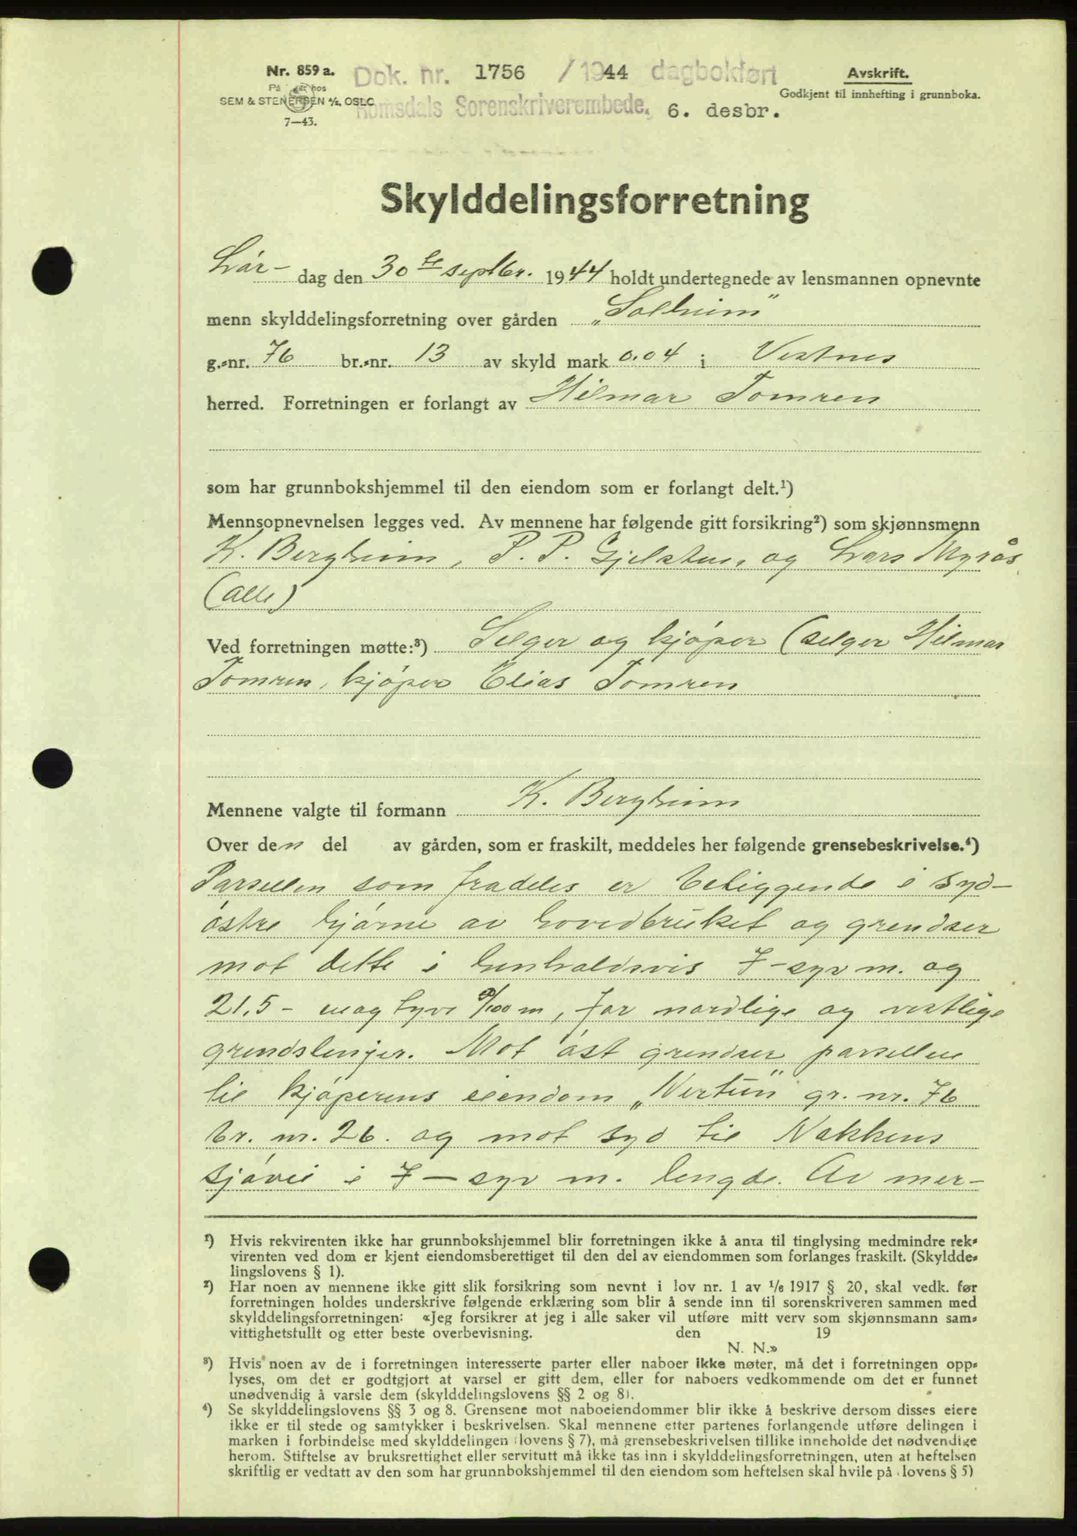 Nr. 859 a.
På lager hos
SEM & STENERSEN A/S, OSLO
7—43.
Dok. nr. 1756 /1944 dagbokført
Romsdals Sorenskriverembede, 6. desbr.
Avskrift.
Godkjent til innhefting i grunnboka.
Skylddelingsforretning
Lør- dag den 30te septbr. 1944 holdt undertegnede av lensmannen opnevnte
menn skylddelingsforretning over gården „Solheim"
g.-nr. 76 br.-nr. 13 av skyld mark 0.04 i Vestnes
herred. Forretningen er forlangt av Hilmar Tomren
som har grunnbokshjemmel til den eiendom som er forlangt delt.¹)
Mennsopnevnelsen legges ved. Av mennene har følgende gitt forsikring²) som skjønnsmenn
K. Bergheim, P. P. Gjelsten, og Lars Myrås
(alle)
Ved forretningen møtte:³) Selger og kjøper (selger Hilmar
Tomren, kjøper Elias Tomren
Mennene valgte til formann K. Bergheim
Over den del av gården, som er fraskilt, meddeles her følgende grensebeskrivelse.⁴)
Parsellen som fradeles er beliggende i syd-
østre hjørne av hovedbruket og grendser
mot dette i henholdsvis 7-syv m. og
21,5 - enogtyve 5/100 m, for nordlige og vestlige
grendslinjer. Mot øst grendser parsellen
til kjøperens eiendom „Vertun" gr. nr. 76
br. nr. 26. og mot syd til Nakkens
sjøvei i 7 — syv m. lengde. Av mer-
¹) Hvis rekvirenten ikke har grunnbokshjemmel blir forretningen ikke å anta til tinglysing medmindre rek-
virenten ved dom er kjent eiendomsberettiget til den del av eiendommen som forlanges fraskilt. (Skyldde-
lingslovens § 1).
²) Har noen av mennene ikke gitt slik forsikring som nevnt i lov nr. 1 av 1/6 1917 § 20, skal vedk. før
forretningen holdes underskrive følgende erklæring som blir å sende inn til sorenskriveren sammen med
skylddelingsforretningen: «Jeg forsikrer at jeg i alle saker vil utføre mitt verv som skjønnsmann sam-
vittighetsfullt og etter beste overbevisning. den 19
N. N.»
³) Hvis noen av de i forretningen interesserte parter eller naboer ikke møter, må det i forretningen opp-
lyses, om det er godtgjort at varsel er gitt dem, eller for naboers vedkommende om det er funnet
unødvendig å varsle dem (skylddelingslovens §§ 2 og 8).
⁴) Se skylddelingslovens §§ 3 og 8. Grensene mot naboeiendommer blir ikke å beskrive dersom disses eiere
ikke er til stede og samtykker i beskrivelsen. Skal mennene etter partenes forlangende utføre delingen i
marken i forbindelse med skylddelingen (lovens § 7), må grensebeskrivelsen tillike inneholde det nødvendige
herom. Stiftelse av bruksrettighet eller servitutt må ikke tas inn i skylddelingsforretningen, uten at heftelsen
skriftlig er vedtatt av den som har grunnbokshjemmel til den eiendom som heftelsen skal hvile på (lovens § 5)